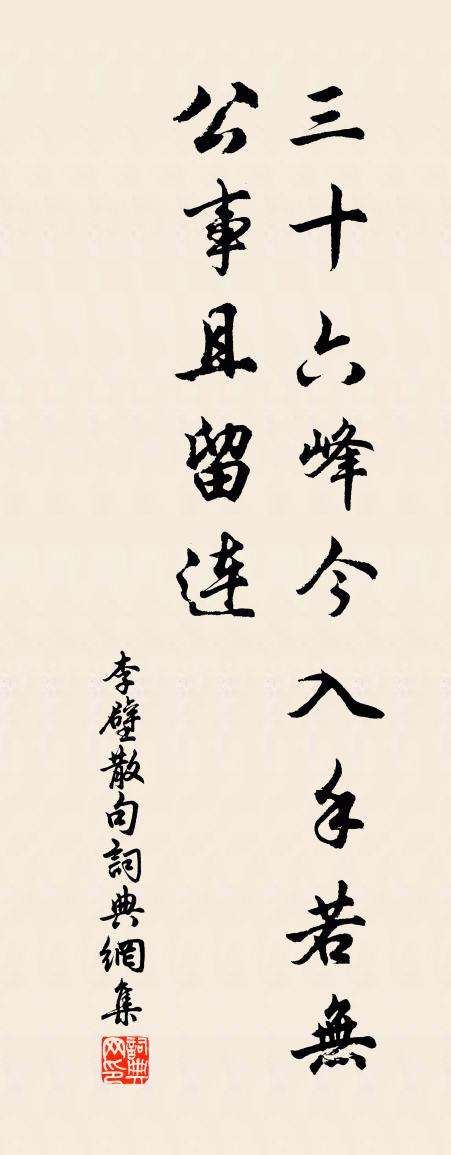 三十六峰今入手若無
公事且留連
李壁散句詞典網集
詞典网印